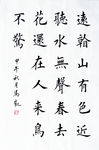 遠山有色近
聽水無聲春去
花還在人來鳥
不驚
甲午秋月